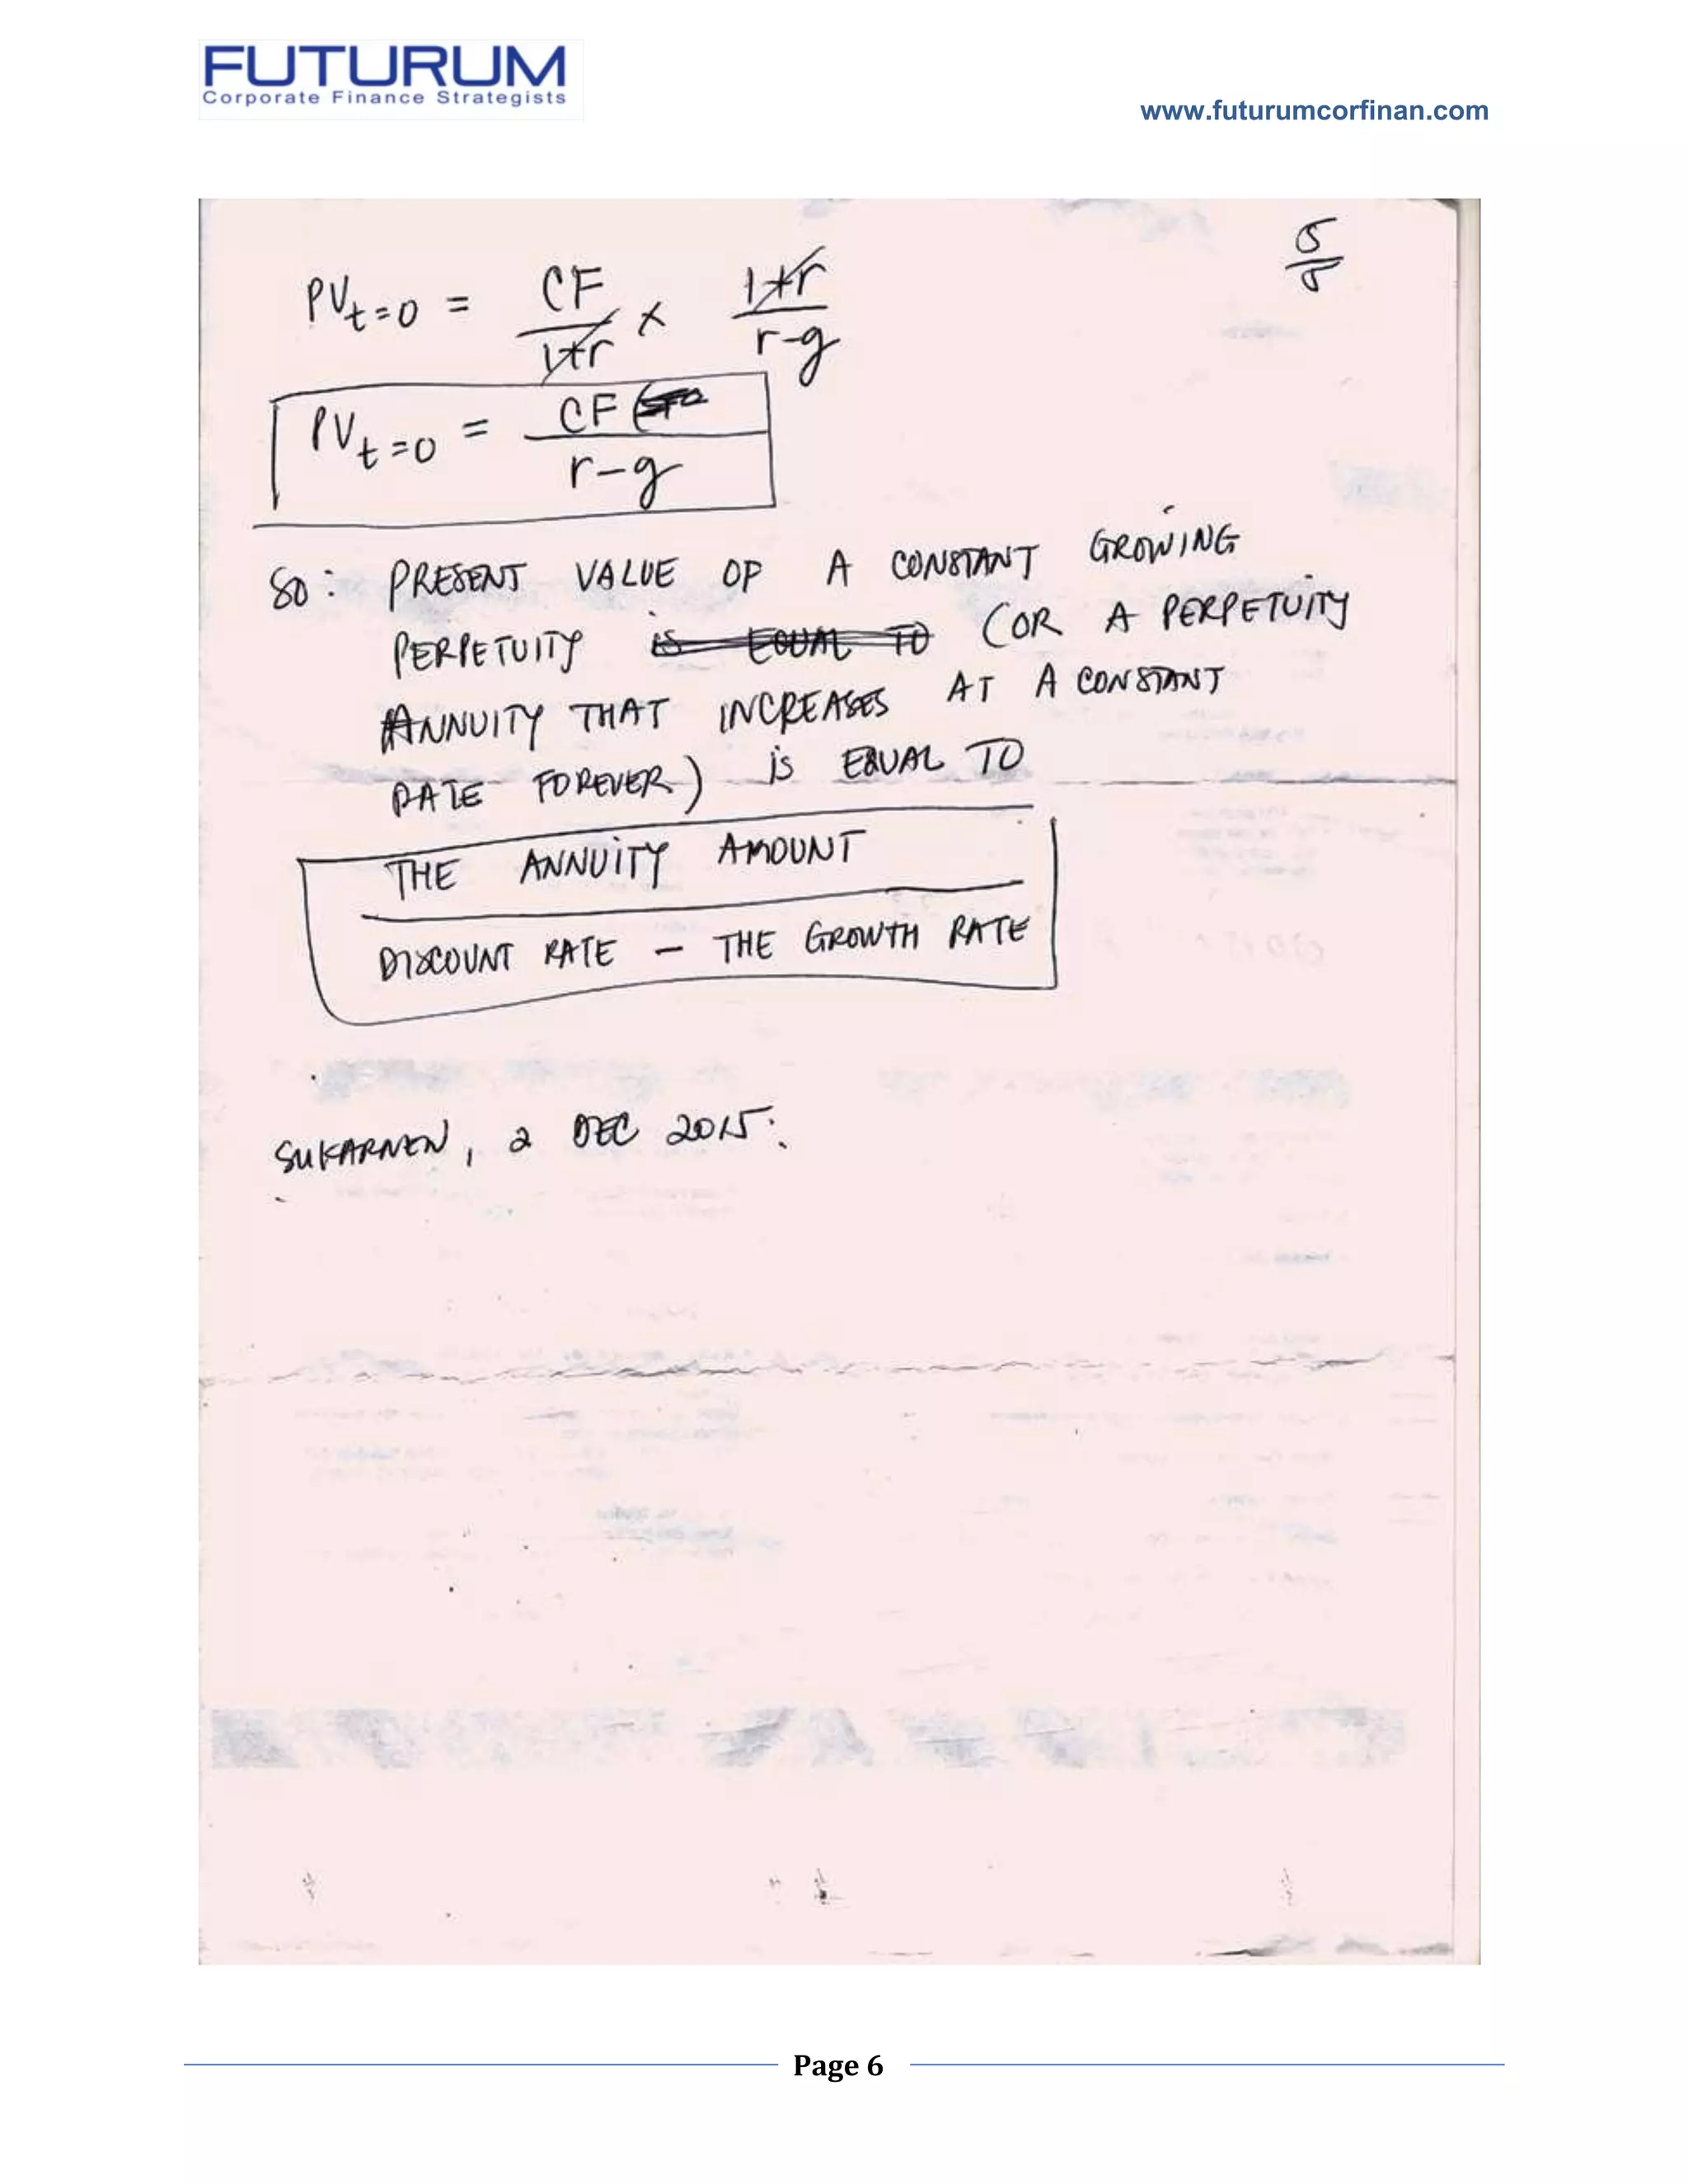 FUTURUM
Corporate Finance Strategists
www.futurumcorfinan.com
5/5
PVt=0 = CF/1+r x 1+r/r-g
PVt=0 = CF/r-g
SO: PRESENT VALUE OF A CONSTANT GROWING
PERPETUITY is EQUAL TO (OR A PERPETUITY
ANNUITY THAT INCREASES AT A CONSTANT
RATE FOREVER) is EQUAL TO
THE ANNUITY AMOUNT
DISCOUNT RATE - THE GROWTH RATE
SUKARNEN, 2 DEC 2015.
Page 6